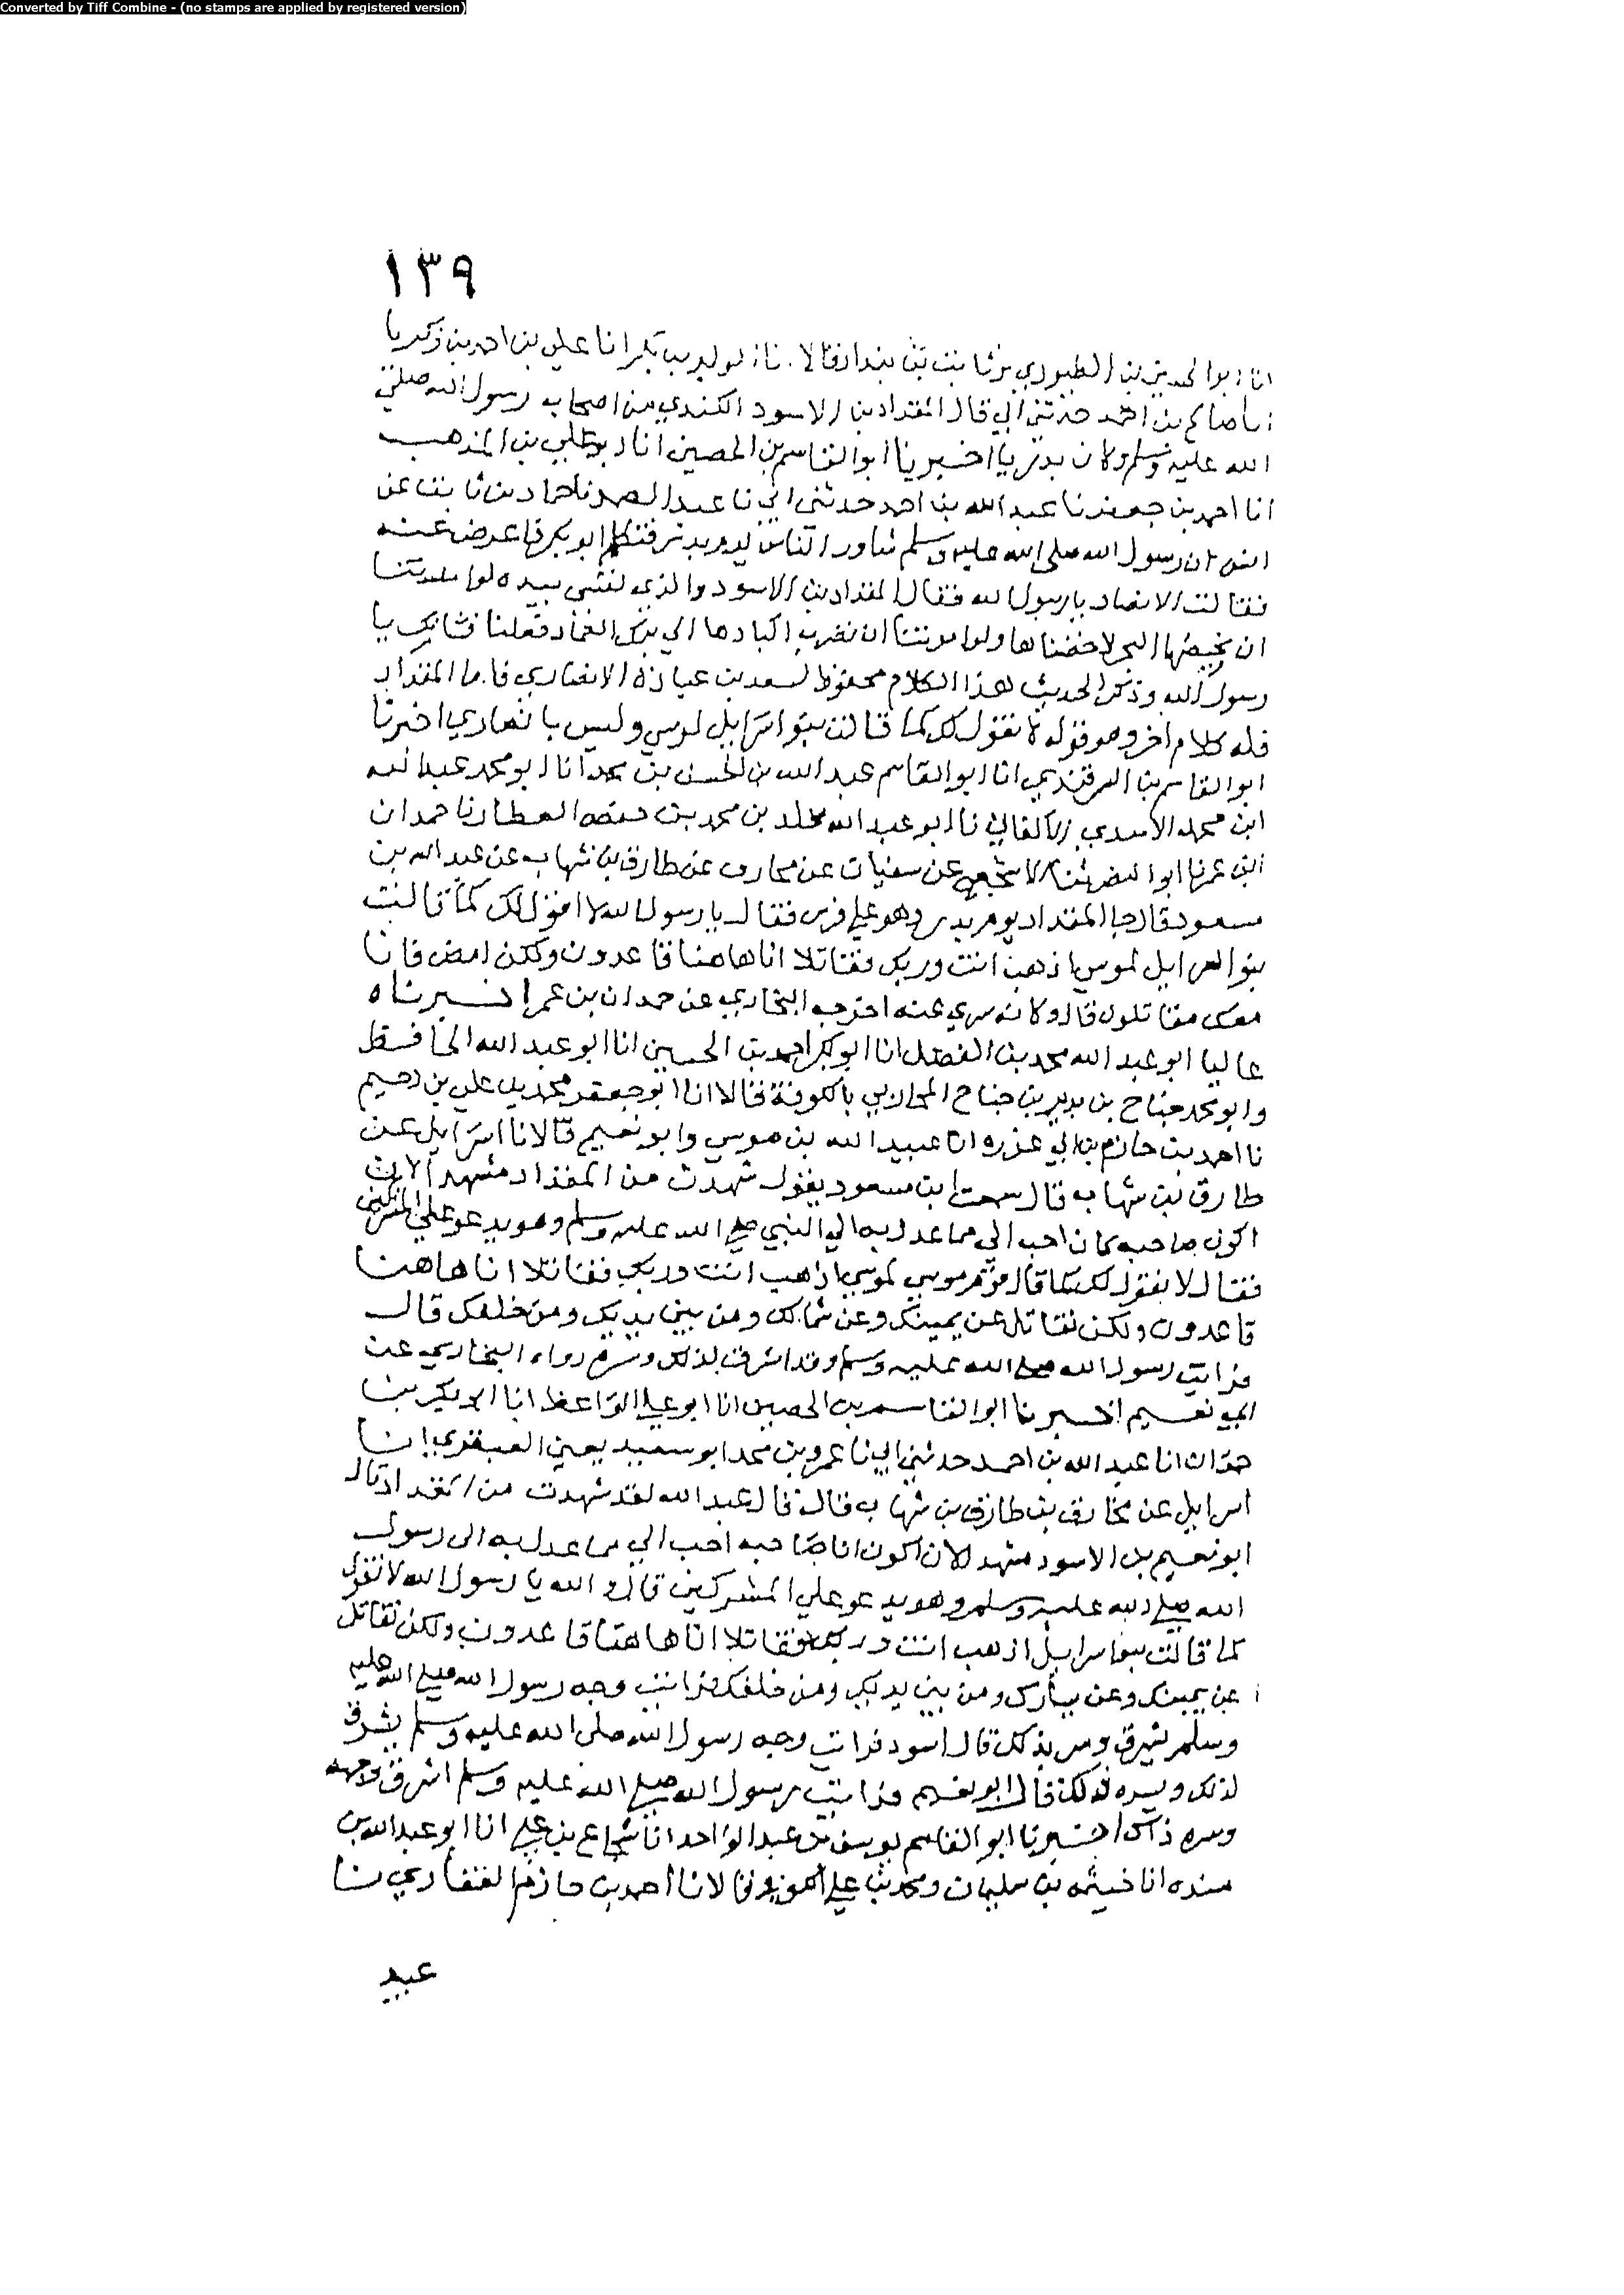 Converted by Tiff Combine - (no stamps are applied by registered version)
١٣٩
انا ابو الحسين بن الطيوري وثابت بن بندار قالا انا الوليد بن بكر انا علي بن احمد بن زكريا
انا صالح بن احمد حدثني ابي قال المقداد بن الاسود الكندي من اصحاب رسول الله صلى
الله عليه وسلم وكان بدريا اخبرنا ابو القاسم بن الحصين انا ابو علي بن المذهب
انا احمد بن جعفر نا عبد الله بن احمد حدثني ابي نا عبد الصمد نا حماد بن ثابت عن
انس ان رسول الله صلى الله عليه وسلم شاور الناس يوم بدر فتكلم ابو بكر فاعرض عنه
فقالت الانصار يا رسول الله فقال المقداد بن الاسود والذي نفسي بيده لوا مرتنا
ان نخيضها البحر لاخضناها ولو امرتنا ان نضرب اكبادها الي برك الغماد فعلنا فشانك يا
رسول الله وذكر الحديث هذا الكلام محفوظ لسعد بن عبادة الانصاري فاما المقداد
فله كلام اخر وهو قوله لا نقول لك كما قالت بنو اسرايل لموسي وليس بانصاري اخبرنا
ابو القاسم بن السمرقندي انا ابو القاسم عبد الله بن الحسن بن محمد انا ابو محمد عبد الله
ابن محمد الاسدي الاكفاني نا ابو عبد الله مخلد بن محمد بن حفص العطار نا حمدان
ابن عمر نا ابو النضر ثنا الاشجعي عن سفيان عن مخارق عن طارق بن شهاب عن عبد الله بن
مسعود قال جا المقداد يوم بدر وهو علي فرس فقال يا رسول الله لا اقول لك كما قالت
بنو اسرايل لموسي اذهب انت وربك فقاتلا انا هاهنا قاعدون ولكن امض فانا
معك مقاتلون قال وكانه سري عنه اخرجه البخاري عن حمدان بن عمر اخبرناه
عاليا ابو عبد الله محمد بن الفضل انا ابو بكر احمد بن الحسين انا ابو عبد الله الحافظ
وابو محمد جناح بن نذير بن جناح المحاربي بالكوفة قالا انا ابو جعفر محمد بن علي بن دحيم
نا احمد بن حازم بن ابي غرزه انا عبيد الله بن موسي وابو نعيم قالا نا اسرايل عن
طارق بن شهاب قال سمعت ابن مسعود يقول شهدت من المقداد مشهدا لان
اكون صاحبه كان احب الي مما عدل به اتي النبي صلي الله عليه وسلم وهو يدعو علي المشركين
فقال لا نقول لك كما قال قوم موسي لموسي اذهب انت وربك فقاتلا انا هاهنا
قاعدون ولكن نقاتل عن يمينك وعن شمالك ومن بين يديك ومن خلفك قال
فرايت رسول الله صلي الله عليه وسلم وقد اشرق لذلك وسره رواه البخاري عن
ابي نعيم اخبرنا ابو القاسم بن الحصين انا ابو علي الواعظ انا ابو بكر بن
حمدان انا عبد الله بن احمد حدثني ابي نا عمرو بن محمد ابو سعيد يعني العنقزي انا
اسرايل عن مخارق بن طارق بن شهاب قال قال عبد الله لقد شهدت من المقداد قال
ابو نعيم بن الاسود مشهد لان اكون انا صاحبه احب الي مما عدل به اتى رسول
الله صلي الله عليه وسلم وهو يدعو علي المشركين قال والله يا رسول الله لا نقول
كما قالت بنوا سرايل اذهب انت وربك فقاتلا انا هاهنا قاعدون ولكن نقاتل
عن يمينك وعن يسارك ومن بين يديك ومن خلفك فرايت وجه رسول الله صلي الله عليه
وسلم يشرق وسر بذلك قال اسود فرايت وجه رسول الله صلى الله عليه وسلم يشرق
لذلك وسره ذلك قال ابو نعيم فرايت رسول الله صلي الله عليه وسلم اشرق وجهه
وسره ذاك اخبرنا ابو القاسم يوسف بن عبد الواحد انا شجاع بن علي انا ابو عبد الله بن
منده انا خيثمه بن سليمان ومحمد بن علي قالا نا احمد بن حازم الغفاري نا
عبيد